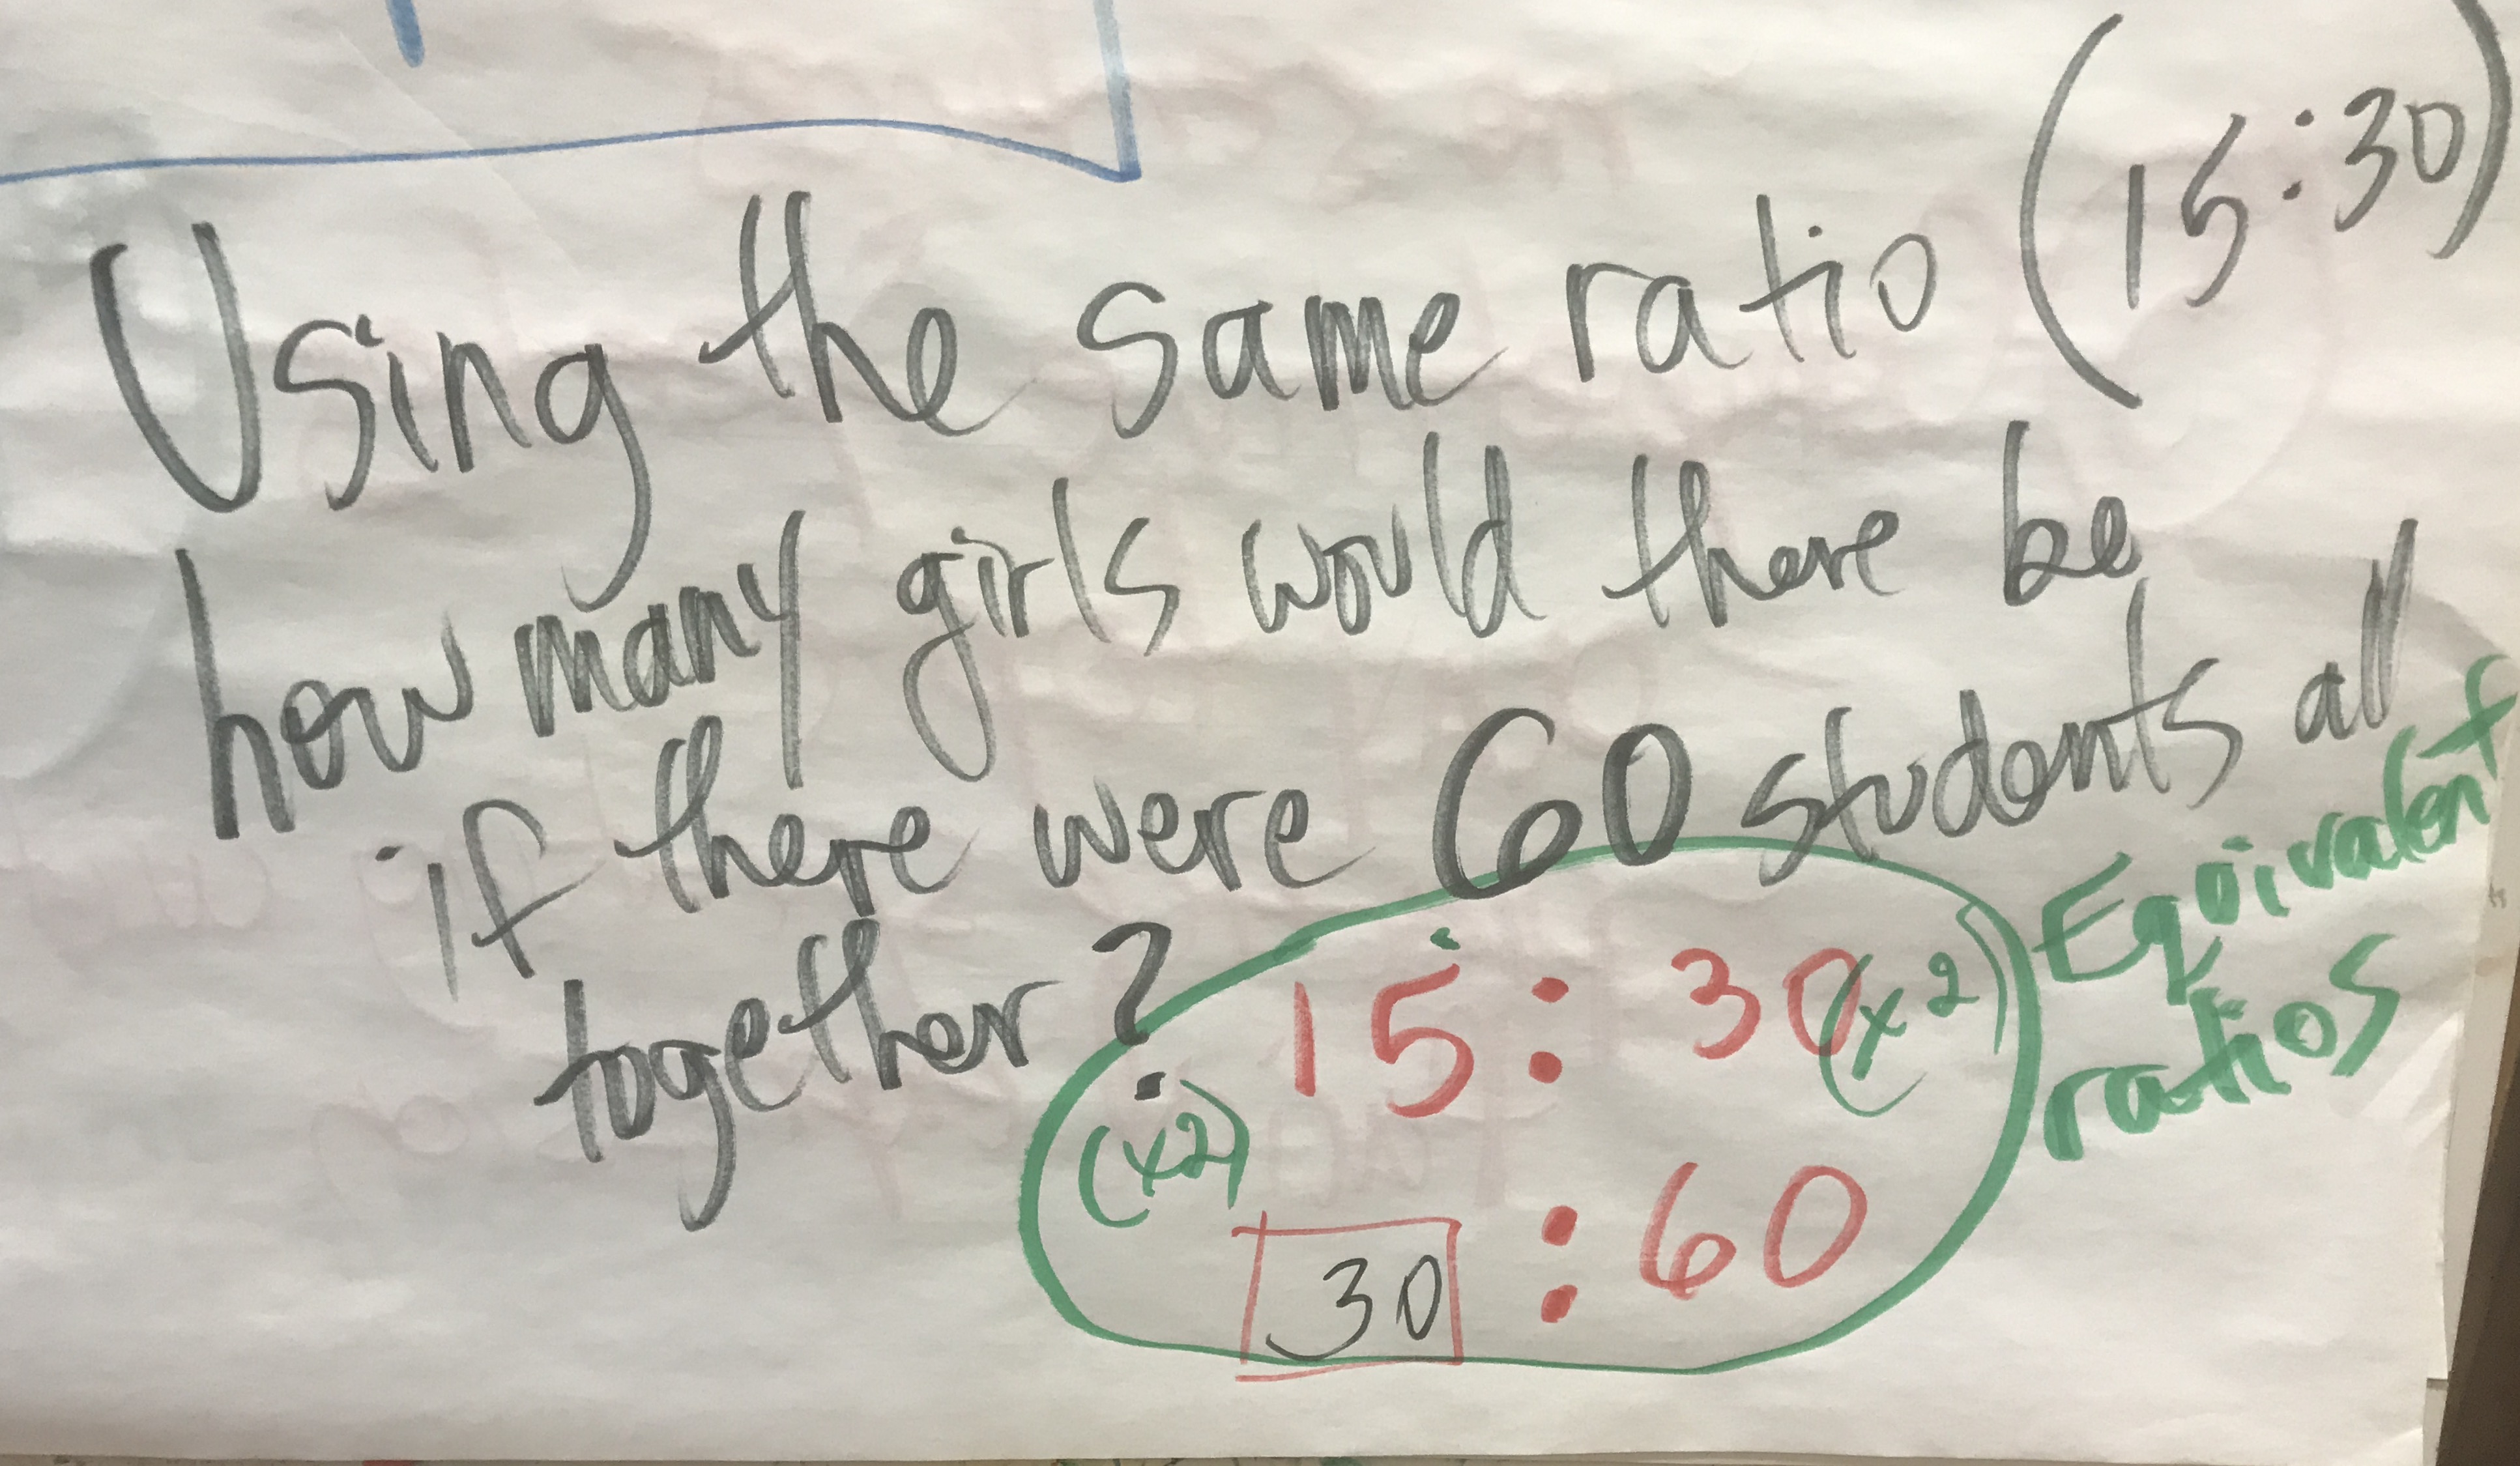 Using the same ratio (15:30)
how many girls would there be
if there were 60 students all
together?
15 : 30 (x2)
(x2)
30 : 60
Equivalent
ratios